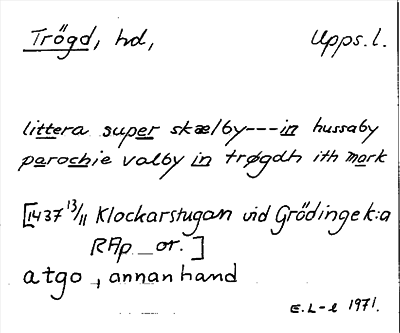 Trögd, hd, Upps. l.
littera super skælby---in hussaby
parochie valby in trøgdh ith mark
[1437 13/11 Klockarstugan vid Grödinge k:a
RAp or.]
atgo, annan hand
E.L-l 1971.